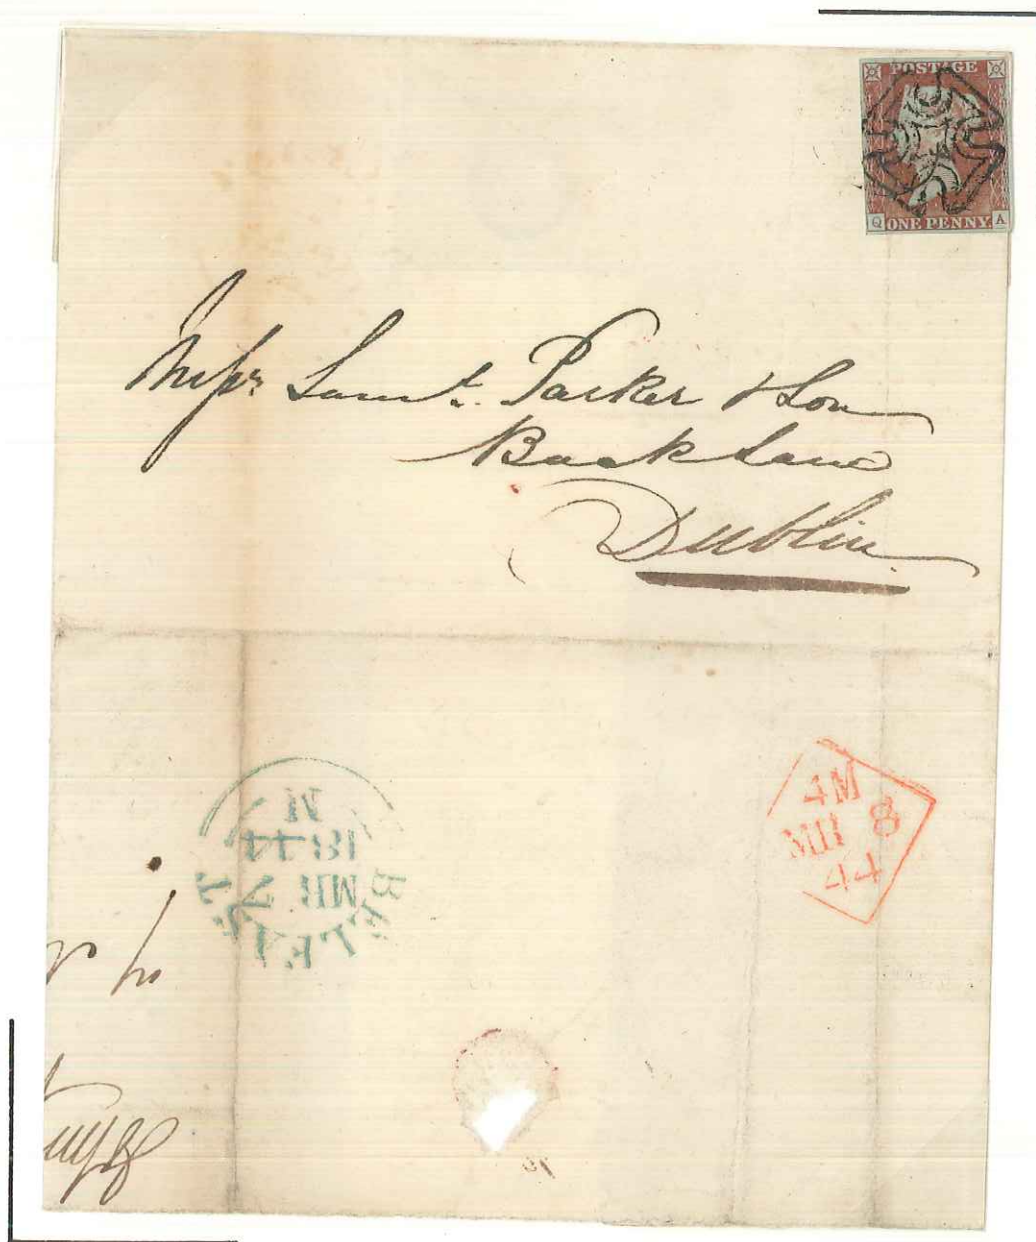 POSTAGE
Q ONE PENNY. A
Messrs Saml. Parker & Son
Back Lane
Dublin
BELFAST
MR 7
1844
M
4M
MR 8
44